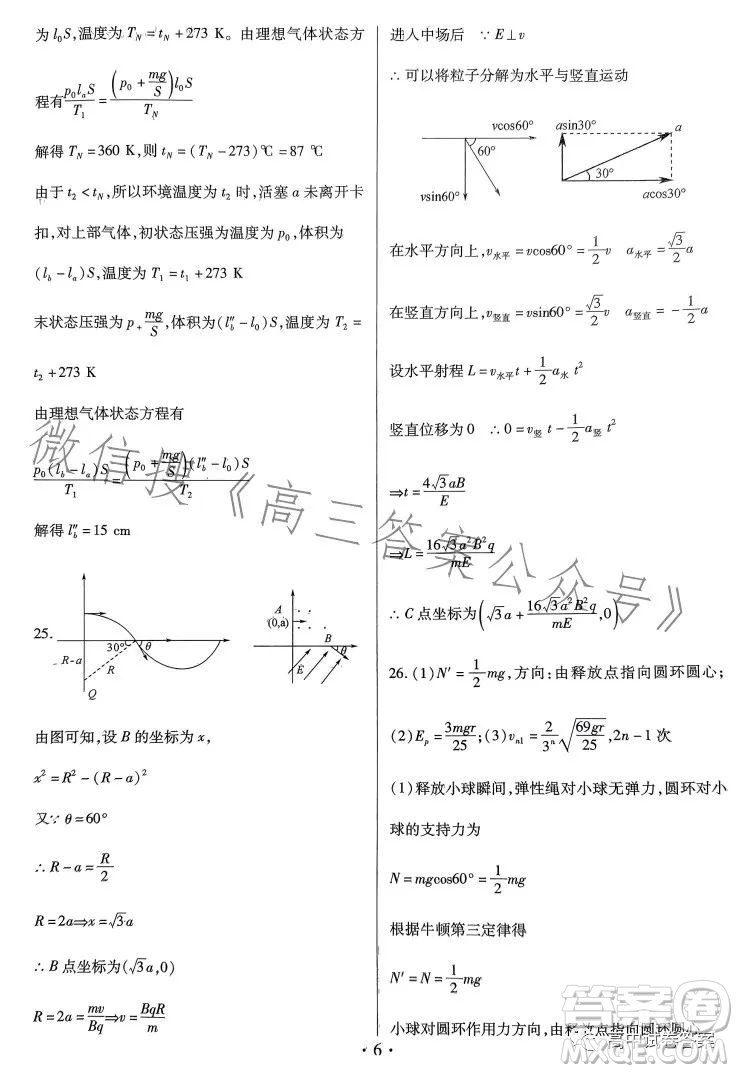 为 l₀S,温度为 T_N = t_N + 273 K。由理想气体状态方
程有 p₀l_aS/T₁ = (p₀ + mg/S)l₀S/T_N
解得 T_N = 360 K,则 t_N = (T_N − 273)℃ = 87 ℃
由于 t₂ < t_N,所以环境温度为 t₂ 时,活塞 a 未离开卡
扣,对上部气体,初状态压强为温度为 p₀,体积为
(l_b − l_a)S,温度为 T₁ = t₁ + 273 K
末状态压强为 p₊ mg/S,体积为(l″_b − l₀)S,温度为 T₂ =
t₂ + 273 K
由理想气体状态方程有
p₀(l_b − l_a)S/T₁ = (p₀ + mg/S)(l″_b − l₀)S/T₂
解得 l″_b = 15 cm
25.
R−a
R
30°
θ
Q
A
(0,a)
B
θ
E
由图可知,设 B 的坐标为 x,
x² = R² − (R − a)²
又∵ θ = 60°
∴ R − a = R/2
R = 2a⇒x = √3a
∴ B 点坐标为(√3a,0)
R = 2a = mv/Bq ⇒v = BqR/m
进入中场后 ∵ E⊥v
∴ 可以将粒子分解为水平与竖直运动
vcos60°
60°
vsin60°
asin30°
a
30°
acos30°
在水平方向上,v水平 = vcos60° = 1/2 v a水平 = √3/2 a
在竖直方向上,v竖直 = vsin60° = √3/2 v a竖直 = −1/2 a
设水平射程 L = v水平 t + 1/2 a水 t²
竖直位移为 0 ∴ 0 = v竖 t − 1/2 a竖 t²
⇒t = 4√3aB/E
⇒L = 16√3a²B²q/mE
∴ C 点坐标为(√3a + 16√3a²B²q/mE,0)
26. (1)N′ = 1/2 mg,方向:由释放点指向圆环圆心;
(2)E_p = 3mgr/25;(3)v_n1 = 2/3ⁿ √(69gr/25),2n − 1 次
(1)释放小球瞬间,弹性绳对小球无弹力,圆环对小
球的支持力为
N = mgcos60° = 1/2 mg
根据牛顿第三定律得
N′ = N = 1/2 mg
小球对圆环作用力方向,由释放点指向圆环圆心,
· 6 ·
微信搜《高三答案公众号》
答案圈
MXQE.COM
高中试卷答案